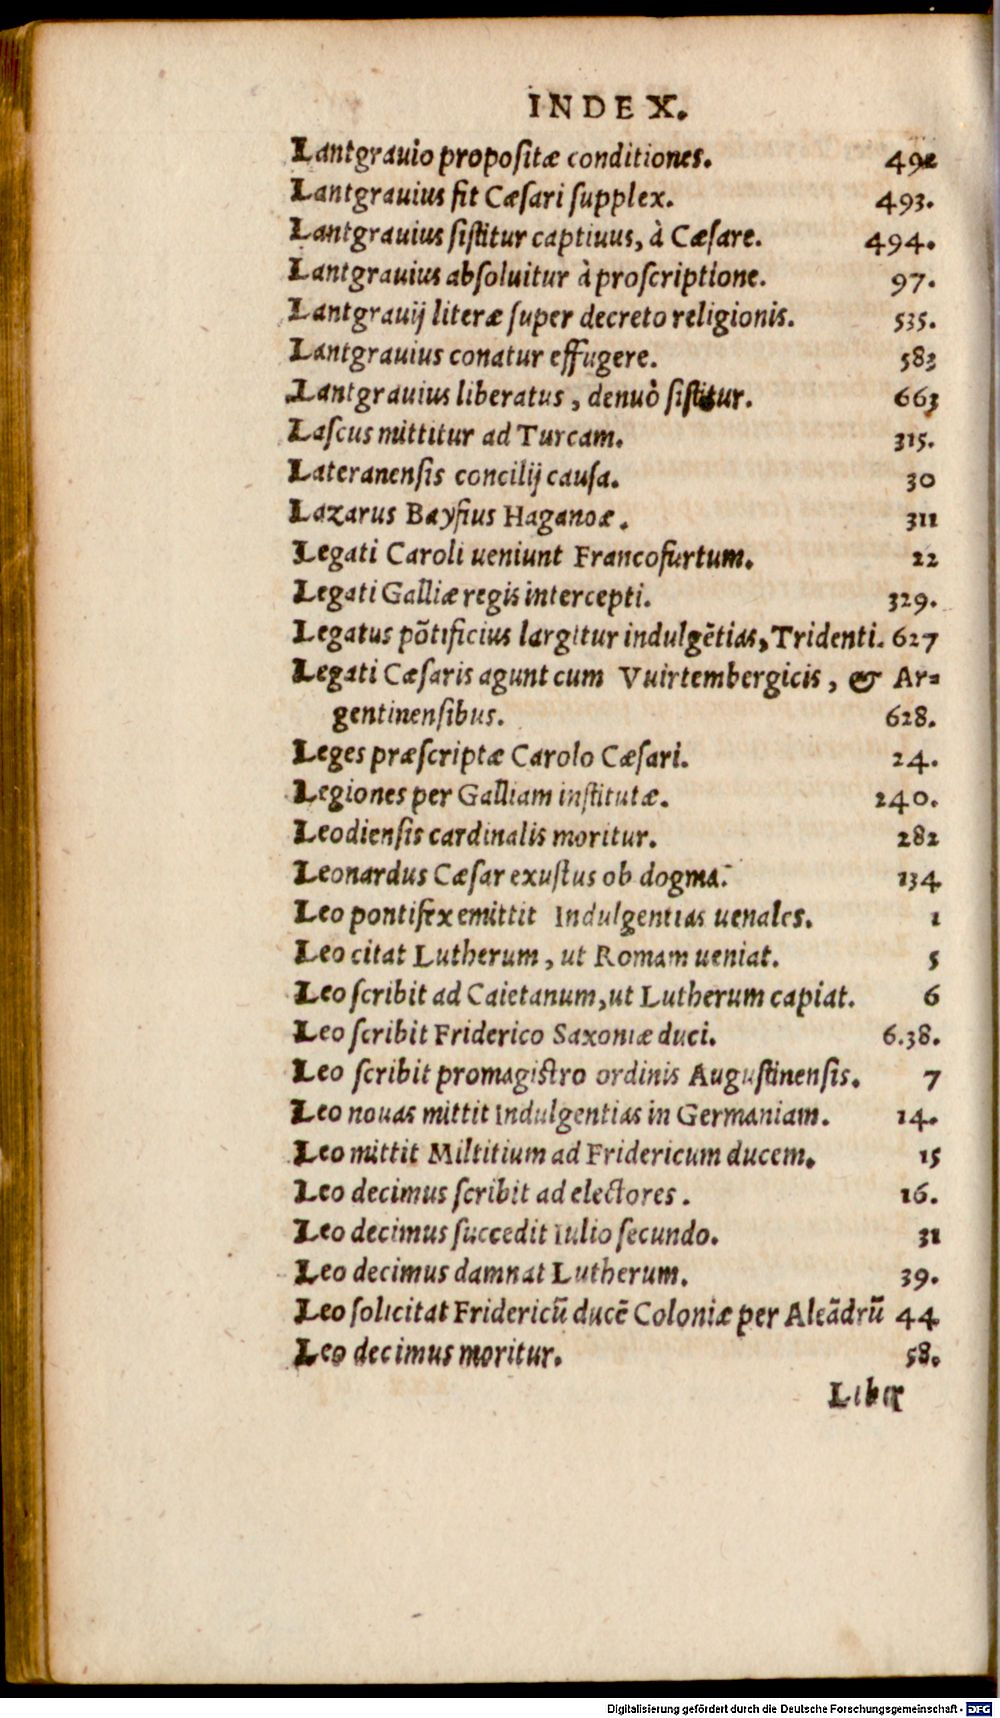 INDEX.
Lantgrauio propositæ conditiones. 492
Lantgrauius fit Cæsari supplex. 493.
Lantgrauius sistitur captiuus, à Cæsare. 494.
Lantgrauius absoluitur à proscriptione. 97.
Lantgrauij literæ super decreto religionis. 535.
Lantgrauius conatur effugere. 583
Lantgrauius liberatus, denuò sistitur. 663
Lascus mittitur ad Turcam. 315.
Lateranensis concilij causa. 30
Lazarus Bayfius Haganoæ. 311
Legati Caroli ueniunt Francofurtum. 22
Legati Galliæ regis intercepti. 329.
Legatus põtificius largitur indulgẽtias, Tridenti. 627
Legati Cæsaris agunt cum Vuirtembergicis, & Ar=
gentinensibus. 628.
Leges præscriptæ Carolo Cæsari. 24.
Legiones per Galliam institutæ. 240.
Leodiensis cardinalis moritur. 282
Leonardus Cæsar exustus ob dogma. 134
Leo pontifex emittit Indulgentias uenales. 1
Leo citat Lutherum, ut Romam ueniat. 5
Leo scribit ad Caietanum, ut Lutherum capiat. 6
Leo scribit Friderico Saxoniæ duci. 6.38.
Leo scribit promagistro ordinis Augustinensis. 7
Leo nouas mittit Indulgentias in Germaniam. 14.
Leo mittit Miltitium ad Fridericum ducem. 15
Leo decimus scribit ad electores. 16.
Leo decimus succedit Iulio secundo. 31
Leo decimus damnat Lutherum. 39.
Leo solicitat Fridericũ ducẽ Coloniæ per Aleãdrũ 44
Leo decimus moritur. 58.
Liber
Digitalisierung gefördert durch die Deutsche Forschungsgemeinschaft - DFG